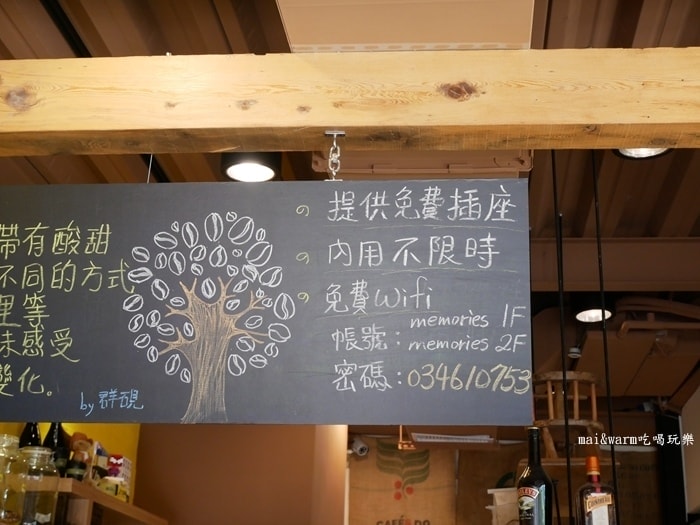 帶有酸甜
不同的方式
理等
味感受
變化。
by 群硯
提供免費插座
內用不限時
免費wifi
帳號：memories 1F
memories 2F
密碼：034610753
mai&warm吃喝玩樂
CAFÉ DO
BAILEYS
COINTREAU